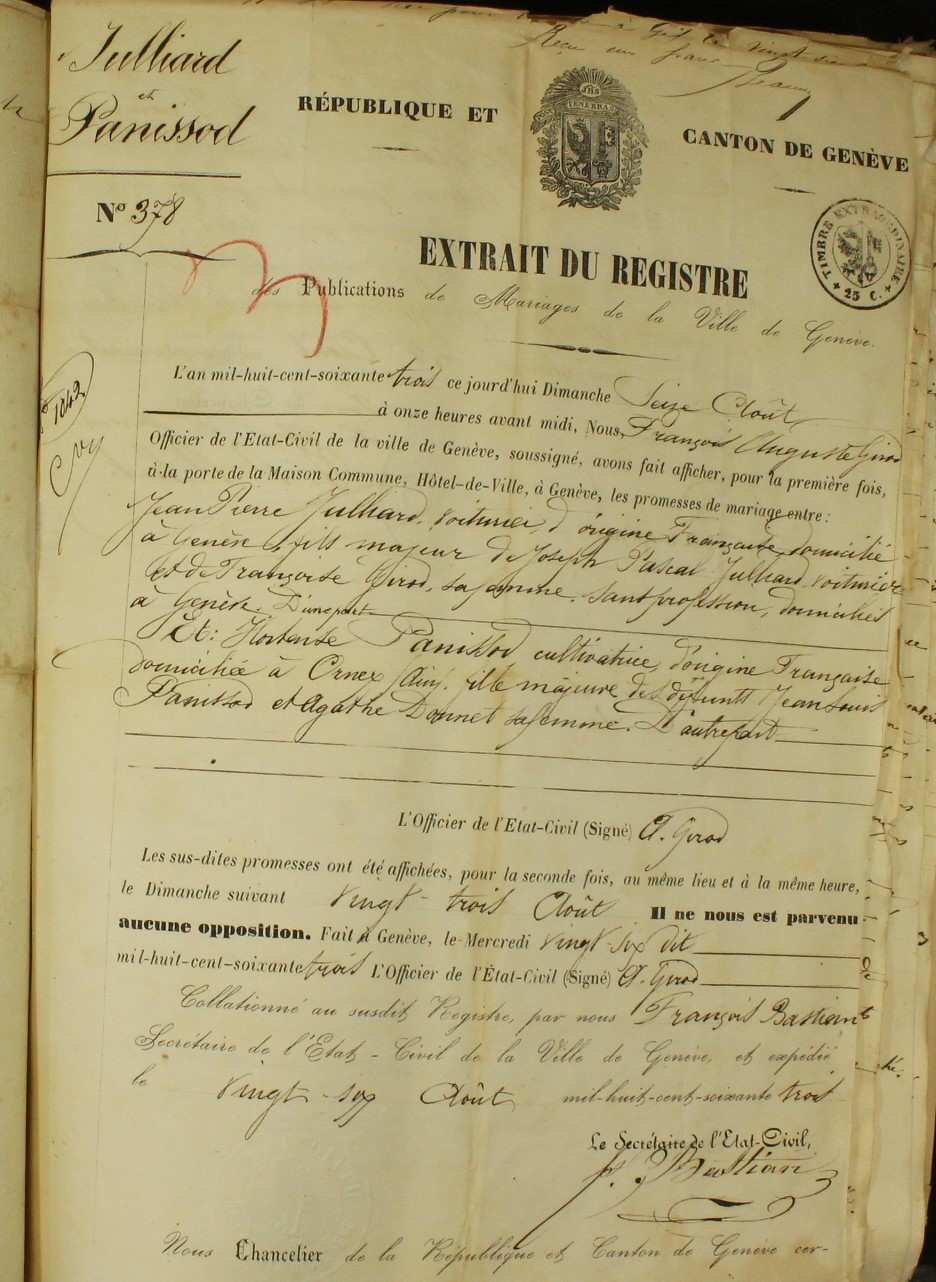 à Gex le vingt
Reçu un franc
Julliard
et
Panissod
RÉPUBLIQUE ET
CANTON DE GENÈVE
JHS
TENEBRAS
N° 378
TIMBRE EXTRAORDINAIRE
25 C.
EXTRAIT DU REGISTRE
des Publications de Mariages de la Ville de Genève.
1042
L'an mil-huit-cent-soixante trois ce jourd'hui Dimanche Seize Août
à onze heures avant midi, Nous, François Auguste Girod
Officier de l'Etat-Civil de la ville de Genève, soussigné, avons fait afficher, pour la première fois,
à la porte de la Maison Commune, Hôtel-de-Ville, à Genève, les promesses de mariage entre:
Jean Pierre Julliard, voiturier, d'origine Française, domicilié
à Genève, fils majeur de Joseph Pascal Julliard, voiturier
et de Françoise Girod, sa femme, sans profession, domiciliés
à Genève. D'une part
Et: Hortense Panissod cultivatrice, d'origine Française
domiciliée à Ornex (Ain). fille majeure des défunts Jean Louis
Panissod et Agathe Donnet sa femme. D'autre part
L'Officier de l'Etat-Civil (Signé) A. Girod
Les sus-dites promesses ont été affichées, pour la seconde fois, au même lieu et à la même heure,
le Dimanche suivant Vingt-trois Août Il ne nous est parvenu
aucune opposition. Fait à Genève, le Mercredi vingt-six dit
mil-huit-cent-soixante trois L'Officier de l'État-Civil (Signé) A. Girod
Collationné au susdit Registre, par nous François Bastian
Secrétaire de l'Etat-Civil de la Ville de Genève, et expédié
le Vingt-six Août mil-huit-cent-soixante trois
Le Secrétaire de l'Etat-Civil,
F. Bastian
Nous Chancelier de la République et Canton de Genève cer-